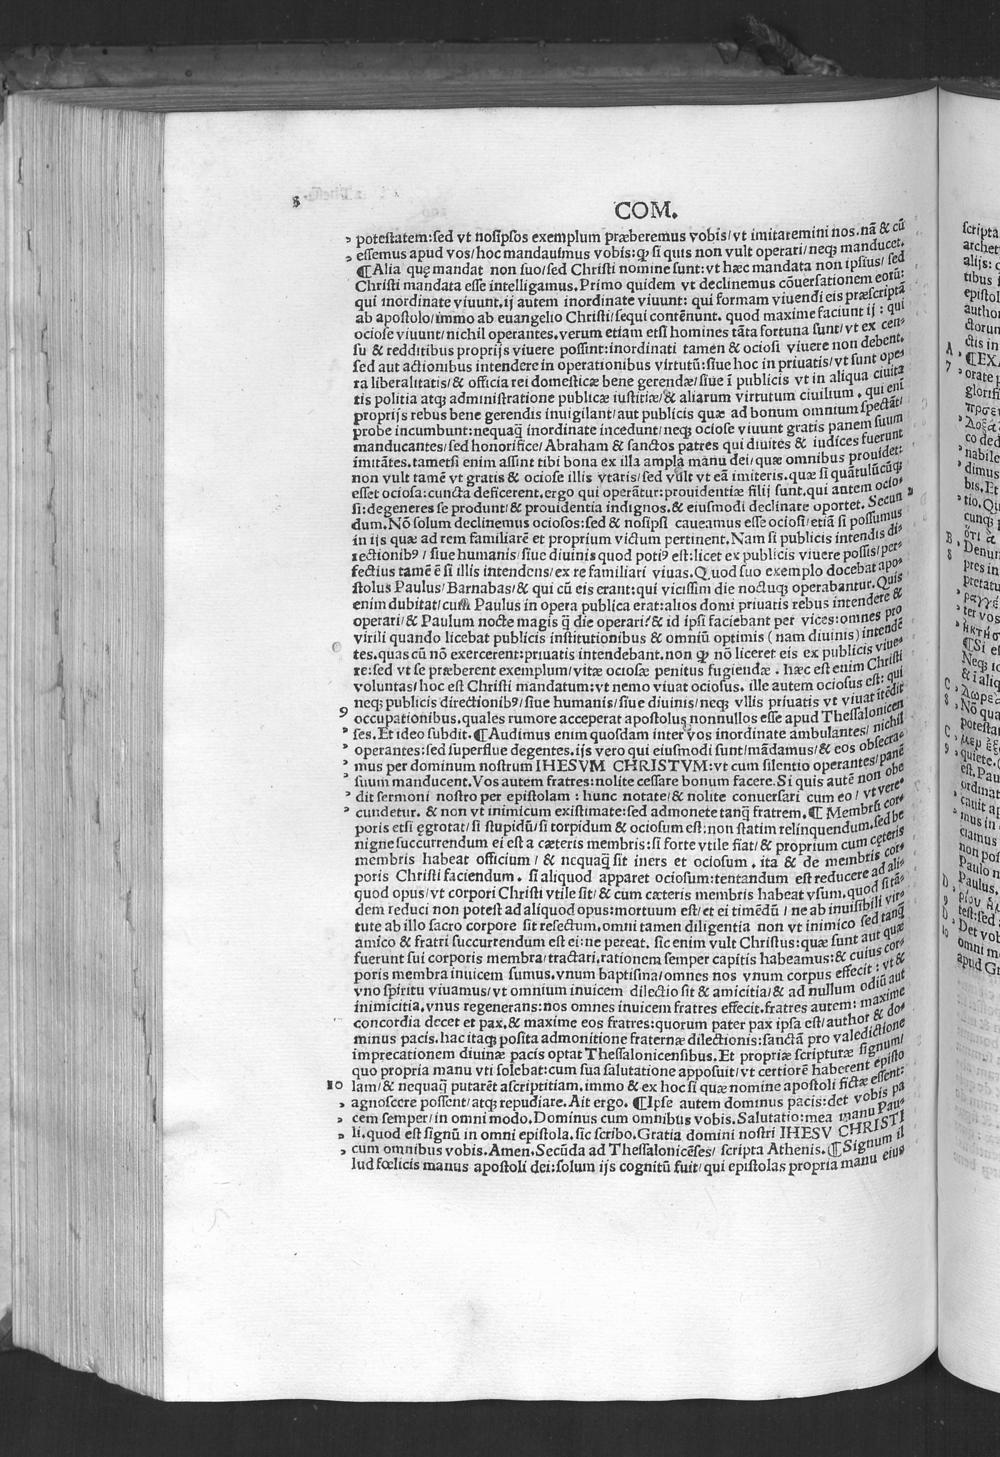 COM.
potestatem:sed vt nosipsos exemplum præberemus vobis/vt imitaremini nos.nã & cũ
essemus apud vos/hoc mandauimus vobis:ꝙ si quis non vult operari/neqꝫ manducet.
¶Alia quę mandat non suo/sed Christi nomine sunt:vt hæc mandata non ipsius/ sed
Christi mandata esse intelligamus.Primo quidem vt declinemus cõuersationem eorũ:
qui inordinate viuunt.ij autem inordinate viuunt: qui formam viuendi eis præscriptã
ab apostolo/immo ab euangelio Christi/sequi contẽnunt. quod maxime faciunt ij : qui
ociose viuunt/nichil operantes.verum etiam etsi homines tãta fortuna sunt/vt ex cen⸗
su & redditibus proprijs viuere possint:inordinati tamen & ociosi viuere non debent.
sed aut actionibus intendere in operationibus virtutũ:siue hoc in priuatis/vt sunt ope⸗
ra liberalitatis/& officia rei domesticæ bene gerendæ/siue ĩ publicis vt in aliqua ciuita
tis politia atqꝫ administratione publicæ iustitiæ/& aliarum virtutum ciuilium . qui enĩ
proprijs rebus bene gerendis inuigilant/aut publicis quæ ad bonum omnium spectãt/
probe incumbunt:nequaq̃ inordinate incedunt/neqꝫ ociose viuunt gratis panem suum
manducantes/sed honorifice/Abraham & sanctos patres qui diuites & iudices fuerunt
imitãtes.tametsi enim assint tibi bona ex illa ampla manu dei/quæ omnibus prouidet:
non vult tamẽ vt gratis & ociose illis vtaris/sed vult vt eã imiteris.quæ si quãtulũcũqꝫ
esset ociosa:cuncta deficerent.ergo qui operãtur:prouidentiæ filij sunt.qui autem ocio⸗
si:degeneres se produnt/& prouidentia indignos.& eiusmodi declinare oportet. Secun
dum.Nõ solum declinemus ociosos:sed & nosipsi caueamus esse ociosi/etiã si possumus
in ijs quæ ad rem familiarẽ et proprium victum pertinent.Nam si publicis intendis di⸗
rectionibꝰ/siue humanis/siue diuinis quod potiꝰ est:licet ex publicis viuere possis/per⸗
fectius tamẽ ẽ si illis intendens/ex re familiari viuas.Quod suo exemplo docebat apo⸗
stolus Paulus/Barnabas/& qui cũ eis erant:qui vicissim die noctuqꝫ operabantur.Quis
enim dubitat/cum Paulus in opera publica erat:alios domi priuatis rebus intendere &
operari/& Paulum nocte magis q̃ die operari?& id ipsi faciebant per vices:omnes pro
virili quando licebat publicis institutionibus & omniũ optimis (nam diuinis) intendẽ
tes.quas cũ nõ exercerent:priuatis intendebant.non ꝙ nõ liceret eis ex publicis viue⸗
re:sed vt se præberent exemplum/vitæ ociosæ penitus fugiendæ . hæc est enim Christi
voluntas/hoc est Christi mandatum:vt nemo viuat ociosus. ille autem ociosus est: qui
neqꝫ publicis directionibꝰ/siue humanis/siue diuinis/neqꝫ vllis priuatis vt viuat itẽdit
9 occupationibus.quales rumore acceperat apostolus nonnullos esse apud Thessalonicen
ses.Et ideo subdit.¶Audimus enim quosdam inter vos inordinate ambulantes/ nichil
operantes:sed superflue degentes.ijs vero qui eiusmodi sunt/mãdamus/& eos obsecra⸗
mus per dominum nostrum IHESVM CHRISTVM:vt cum silentio operantes/panẽ
suum manducent.Vos autem fratres:nolite cessare bonum facere.Si quis autẽ non obe
dit sermoni nostro per epistolam : hunc notate/& nolite conuersari cum eo/ vt vere⸗
cundetur. & non vt inimicum existimate:sed admonete tanq̃ fratrem.¶ Membrũ cor⸗
poris etsi ęgrotat/si stupidũ/si torpidum & ociosum est:non statim relinquendum.sed be
nigne succurrendum ei est a cæteris membris:si forte vtile fiat/& proprium cum cęteris
membris habeat officium / & nequaq̃ sit iners et ociosum . ita & de membris cor⸗
poris Christi faciendum. si aliquod apparet ociosum:tentandum est reducere ad ali⸗
quod opus/vt corpori Christi vtile sit/& cum cæteris membris habeat vsum.quod si tã⸗
dem reduci non potest ad aliquod opus:mortuum est/et ei timẽdũ / ne ab inuisibili vir⸗
tute ab illo sacro corpore sit resectum.omni tamen diligentia non vt inimico sed tanq̃
amico & fratri succurrendum est ei:ne pereat. sic enim vult Christus:quæ sunt aut quæ
fuerunt sui corporis membra/tractari.rationem semper capitis habeamus:& cuius cor⸗
poris membra inuicem sumus.vnum baptisma/omnes nos vnum corpus effecit : vt &
vno spiritu viuamus/vt omnium inuicem dilectio sit & amicitia/& ad nullum odiũ aut
inimicitia.vnus regenerans:nos omnes inuicem fratres effecit.fratres autem: maxime
concordia decet et pax.& maxime eos fratres:quorum pater pax ipsa est/author & do⸗
minus pacis.hac itaqꝫ posita admonitione fraternæ dilectionis:sanctã pro valedictione
imprecationem diuinæ pacis optat Thessalonicensibus.Et propriæ scripturæ signum/
quo propria manu vti solebat:cum sua salutatione apposuit/vt certiorẽ haberent episto
10 lam/& nequaq̃ putarẽt ascriptitiam.immo & ex hoc si quæ nomine apostoli fictæ essent:
agnoscere possent/atqꝫ repudiare.Ait ergo. ¶Ipse autem dominus pacis:det vobis pa
cem semper/in omni modo.Dominus cum omnibus vobis.Salutatio:mea manu Pau⸗
li.quod est signũ in omni epistola.sic scribo.Gratia domini nostri IHESV CHRISTI
cum omnibus vobis.Amen.Secũda ad Thessalonicẽses/ scripta Athenis.¶Signum il
lud fœlicis manus apostoli dei:solum ijs cognitũ fuit/qui epistolas propria manu eius